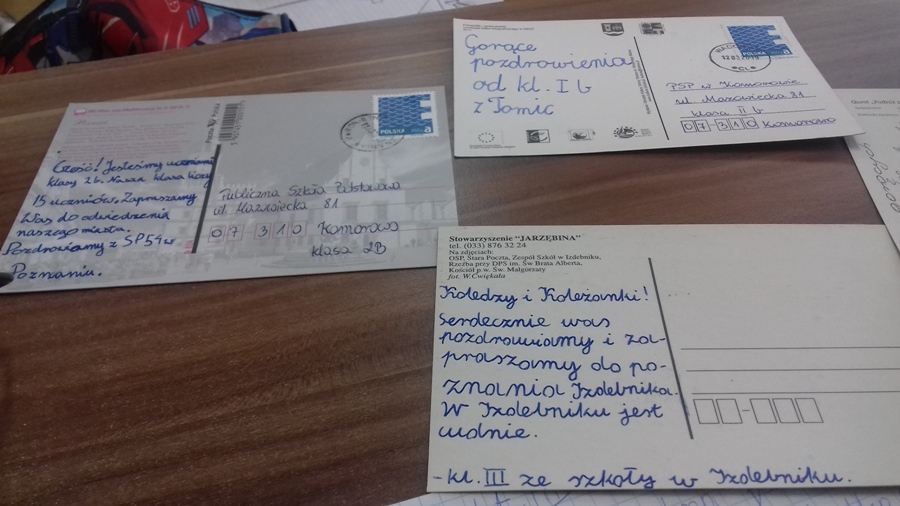 Cześć! Jesteśmy uczniami
klasy 2b. Nasza klasa liczy
15 uczniów. Zapraszamy
Was do odwiedzenia
naszego miasta.
Pozdrawiamy z SP54 w
Poznaniu.
POLSKA
a
Publiczna Szkoła Podstawowa
ul. Mazowiecka 81
07-310 Komorowo
klasa 2B
Gorące
pozdrowienia
od kl. I b
z Tomic
POLSKA
a
PSP w Komorowie
ul. Mazowiecka 81
klasa II b
07-310 Komorowo
Stowarzyszenie "JARZĘBINA"
tel. (033) 876 32 24
Na zdjęciach:
OSP, Stara Poczta, Zespół Szkół w Izdebniku,
Rzeźba przy DPS im. Św Brata Alberta,
Kościół p.w. Św. Małgorzaty
fot. W.Ćwiękała
Koledzy i Koleżanki!
Serdecznie was
pozdrawiamy i za-
praszamy do po-
znania Izdebnika.
W Izdebniku jest
ładnie.
-kl. III ze szkoły w Izdebniku.